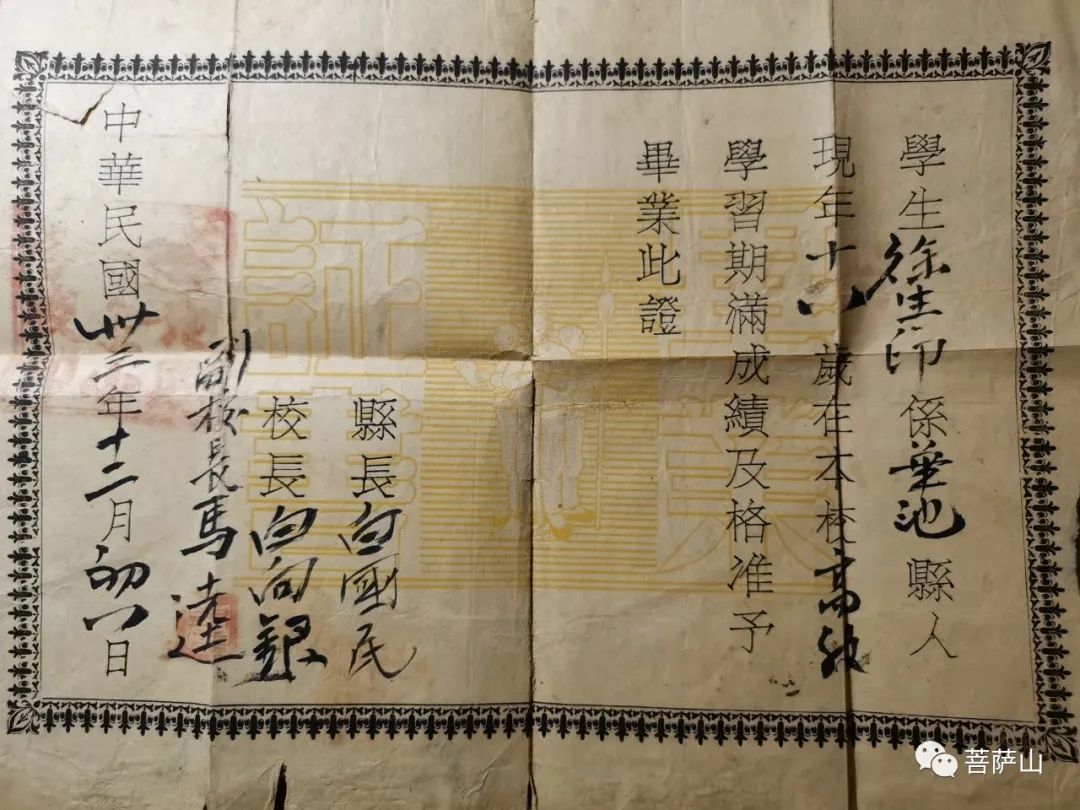 學生徐生印係華池縣人
現年十八歲在本校高級
學習期滿成績及格准予
畢業此證
畢業証書
縣長白國民
校長白向銀
副校長馬
中華民國卅三年十二月初八日
菩萨山